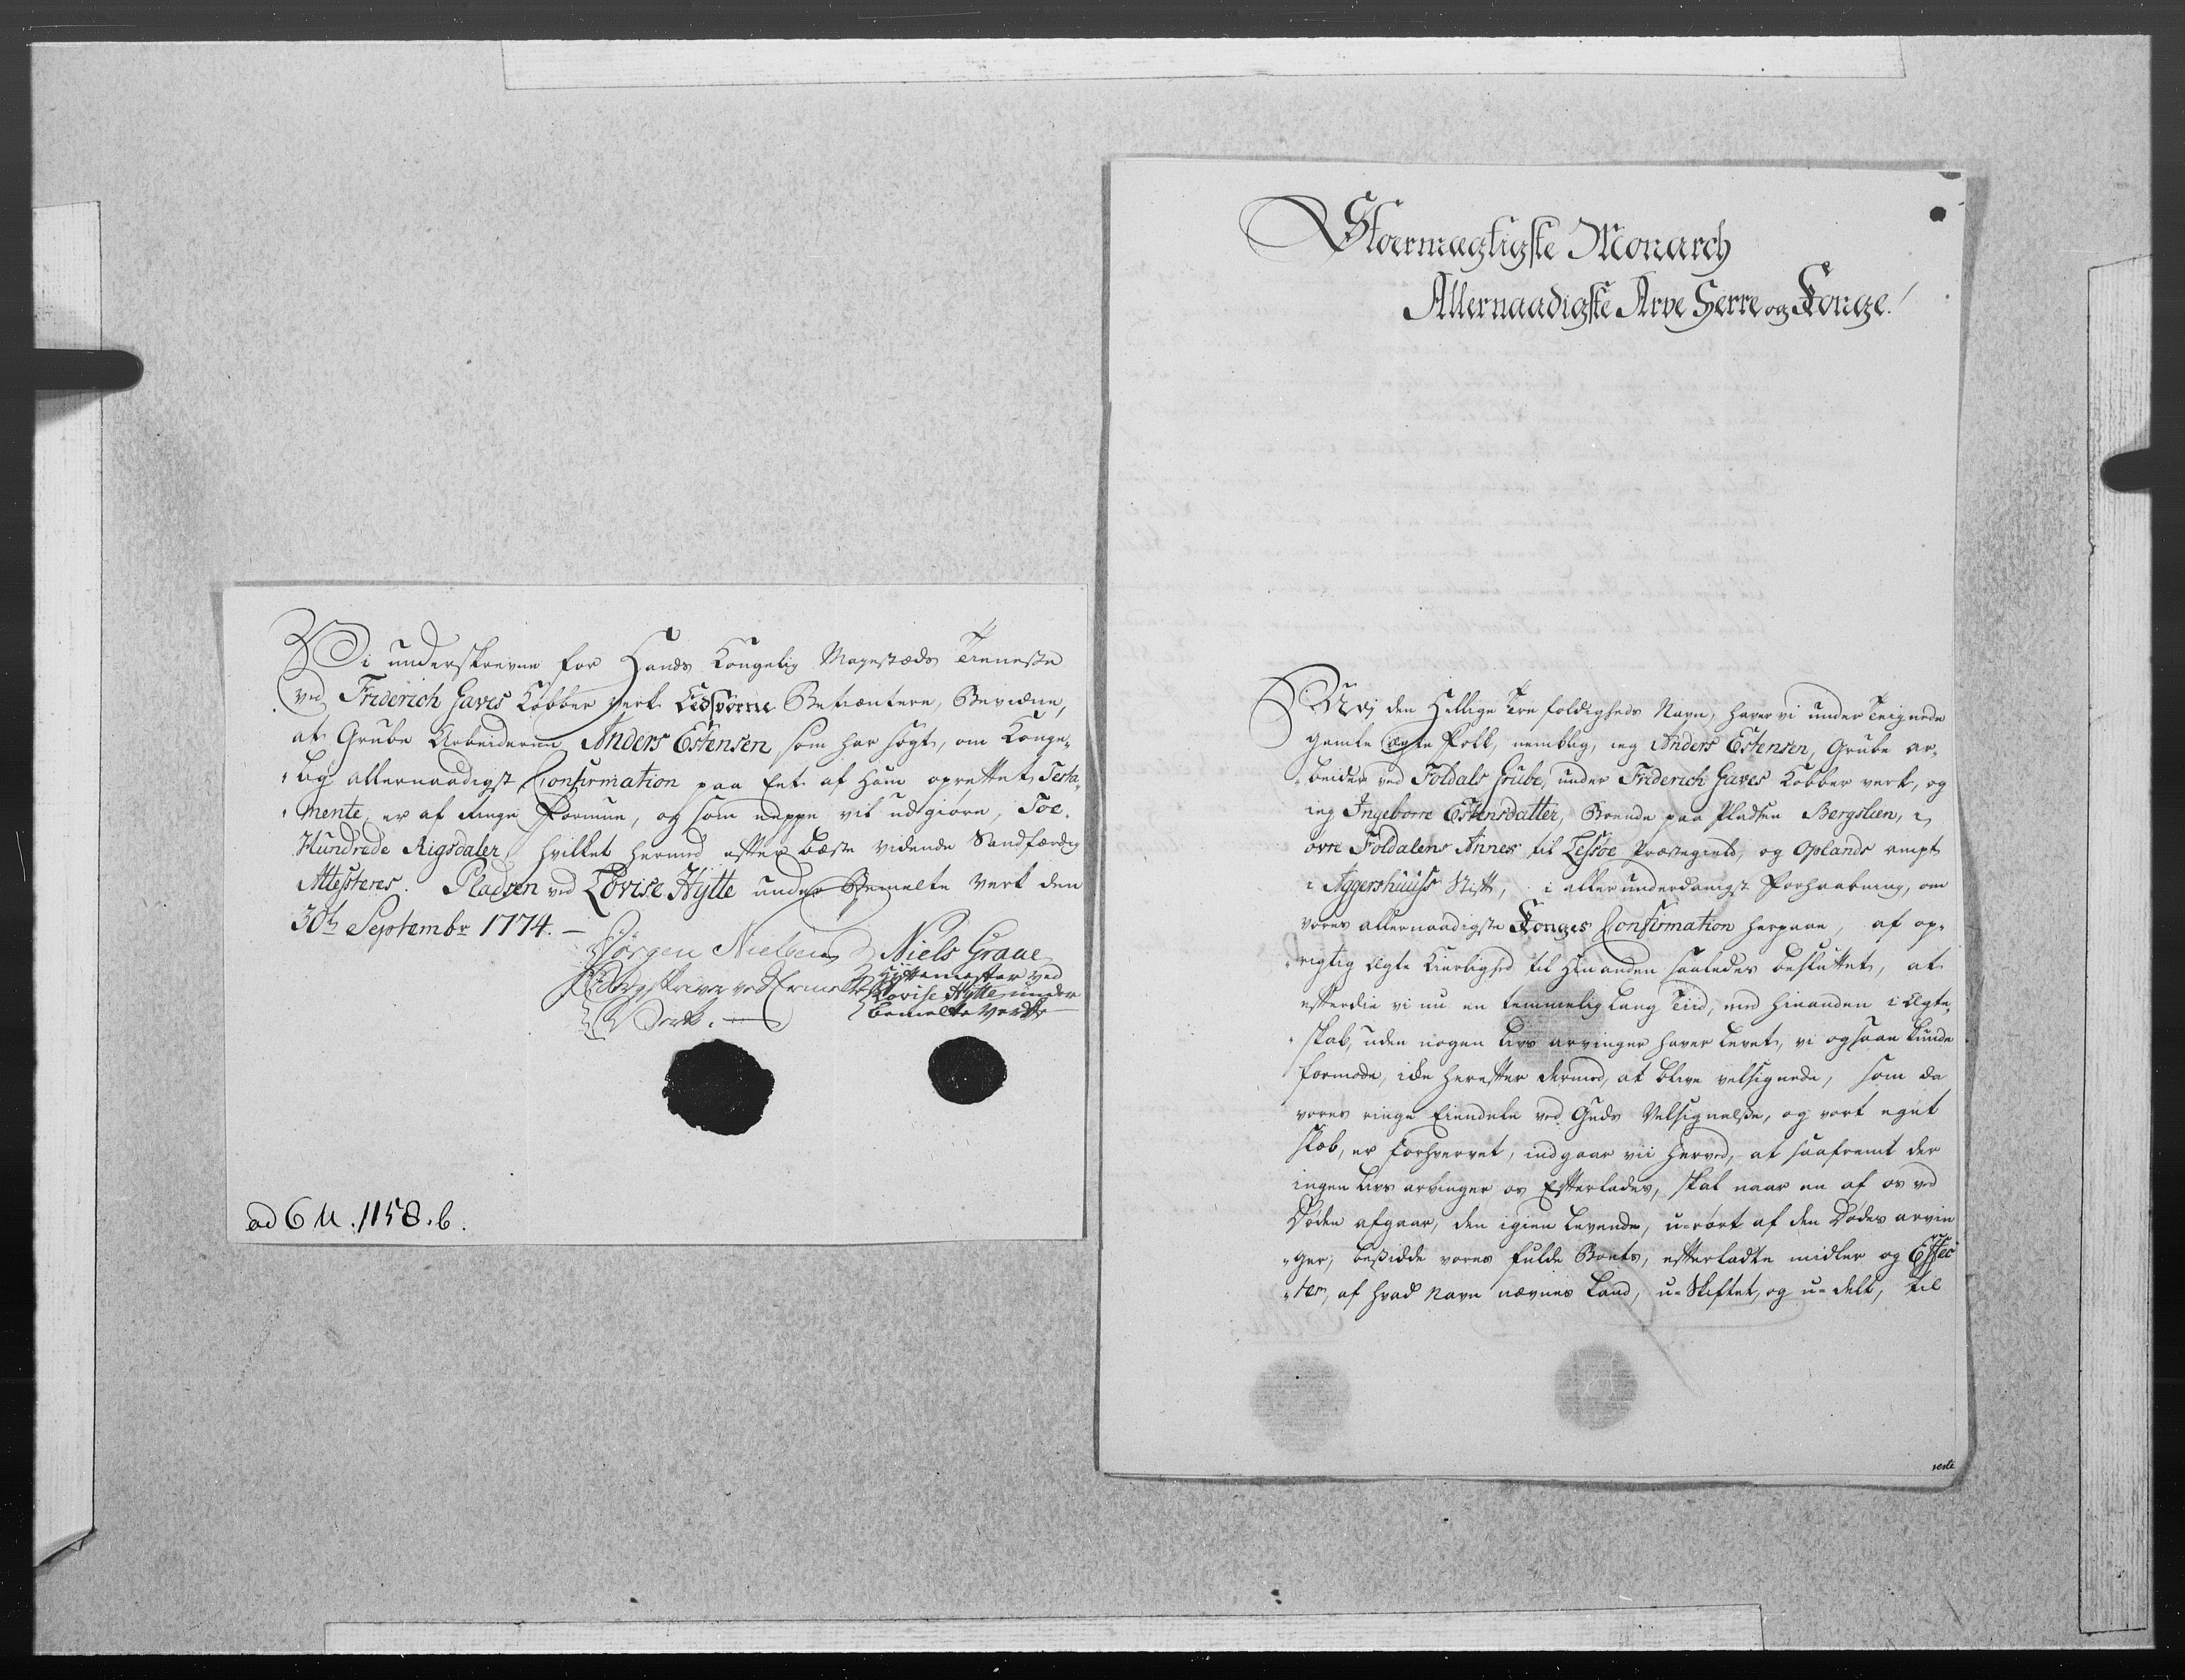 Vi underskrevne for Hands Kongelig Mayestæds Tieneste
ved Friderich Gaves Kobber Verk Betientere, Bevidne,
at Grube Arbeideren Anders Estensen, som har søgt, om Konge-
lig allernaadigst Confirmation paa Eet af ham oprettet, Testa-
mente, er af Ringe Formue, og som neppe vil udgiøre, Toe
Hundrede Rigsdaler, hvilket hermed efter bæste vidende Sandfærdig
Attesteres. Pladsen ved Lovise Hytte under Bemelte Verk den
30th Septembr 1774. –
Jørgen Nielsen
Bergskriver ved
Verk.
Niels Graae
Hyttemester ved
Lovise Hytte under
bemelte Verk
ad 6 M. 1158. b.
Stoermægtigste Monarch
Allernaadigste Arve Herre og Konge!
Udj den Hellige Tre foldigheds Navn, haver vi under Teignede
gamle Ægte Folk, nemblig, ieg Anders Estensen, Grube ar-
beider ved Foldals Grube, under Friderich Gaves Kobber verk, og
ieg Ingeborre Estensdatter, Boende paa Pladsen Bergslien, i
øvre Foldalens Annex til Lessøe Præstegield, og Oplands ampt
i Aggershuuss Stift, i aller underdanigst Forhaabning, om
vores allernaadigste Konges Confirmation herpaae, af op-
rigtig Ægte Kierlighed til Hinanden saaledes besluttet, at
efterdie vi nu en temmelig lang Tiid, med hinanden i Ægte-
skab, uden nogen Livs arvinger haver Levet, vi ogsaae kunde
formode, icke herefter dermed, at blive velsignede, som da
vores ringe Eiendele ved Guds Velsignelse, og vort eget
slæb, er forhvervet, indgaar vii herved, at saafremt der
ingen Livs arvinger os Efterlades, skal naar en af os ved
Døden afgaar, den igien Levende, u-rørt af den Dødes arvin
ger, besidde vores fulde Boets, efterladte midler og Effec
ter, af hvad Navn nævnes kand, u-Skiftet, og u-delt, til